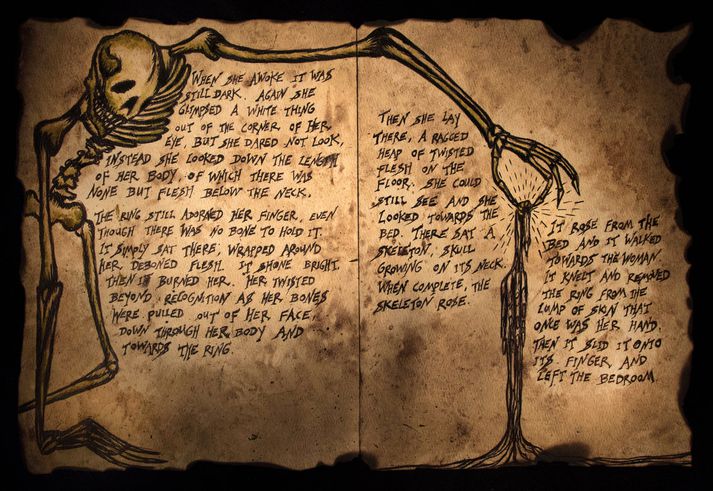 WHEN SHE AWOKE IT WAS
STILL DARK. AGAIN SHE
GLIMPSED A WHITE THING
OUT OF THE CORNER OF HER
EYE, BUT SHE DARED NOT LOOK,
INSTEAD SHE LOOKED DOWN THE LENGTH
OF HER BODY, OF WHICH THERE WAS
NONE BUT FLESH BELOW THE NECK.
THE RING STILL ADORNED HER FINGER, EVEN
THOUGH THERE WAS NO BONE TO HOLD IT.
IT SIMPLY SAT THERE, WRAPPED AROUND
HER DEBONED FLESH. IT SHONE BRIGHT.
THEN IT BURNED HER. HER TWISTED
BEYOND RECOGNITION AS HER BONES
WERE PULLED OUT OF HER FACE,
DOWN THROUGH HER BODY AND
TOWARDS THE RING.
THEN SHE LAY
THERE, A RAGGED
HEAP OF TWISTED
FLESH ON THE
FLOOR. SHE COULD
STILL SEE AND SHE
LOOKED TOWARDS THE
BED. THERE SAT A
SKELETON, SKULL
GROWING ON ITS NECK.
WHEN COMPLETE, THE
SKELETON ROSE.
IT ROSE FROM THE
BED AND IT WALKED
TOWARDS THE WOMAN.
IT KNELT AND REMOVED
THE RING FROM THE
LUMP OF SKIN THAT
ONCE WAS HER HAND.
THEN IT SLID IT ONTO
ITS FINGER AND
LEFT THE BEDROOM.